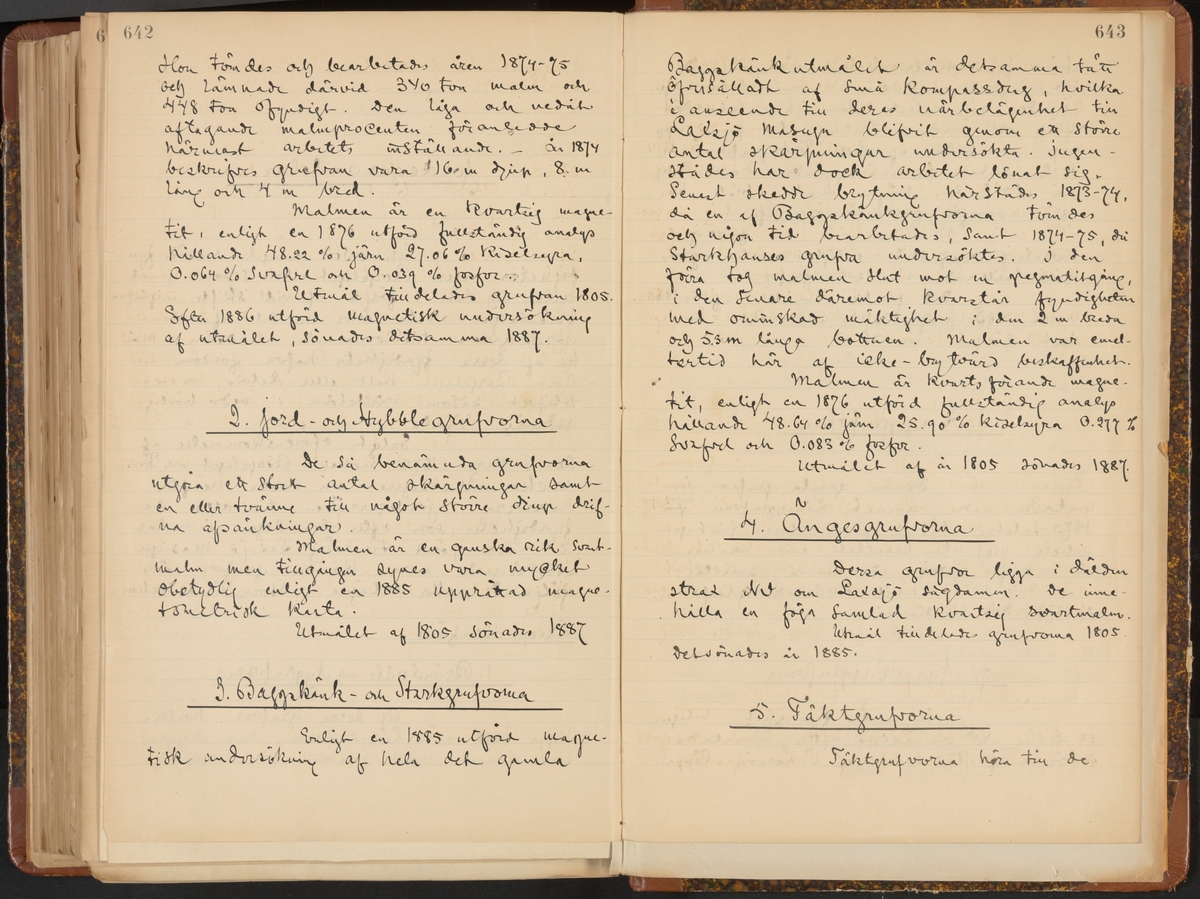 6 642
Hon tömdes och bearbetades åren 1874-75
och lämnade därvid 340 ton malm och
448 ton ofyndigt. Den låga och nedåt
aftagande malmprocenten föranledde
närmast arbetets inställande. – År 1874
beskrifves grufvan vara 16 m djup, 8 m
lång och 4 m bred.
Malmen är en kvartsig magne-
tit, enligt en 1876 utförd fullständig analys
hållande 48.22 % järn 27.06 % kiselsyra,
0.064 % svafvel och 0.039 % fosfor.
Utmål tilldelades grufvan 1805.
Efter 1886 utförd magnetisk undersökning
af utmålet, sönades detsamma 1887.
2. Jord- och Hybblegrufvorna
De så benämnda grufvorna
utgöra ett stort antal skärpningar samt
en eller tvänne till något större djup drif-
na afsänkningar.
Malmen är en ganska rik svart-
malm men tillgången synes vara mycket
obetydlig enligt en 1885 upprättad magne-
tometrisk karta.
Utmålet af 1805 sönades 1887
3. Baggskänk- och Starkgrufvorna
Enligt en 1885 utförd magne-
tisk undersökning af hela det gamla
643
Baggskänkutmålet är detsamma tätt
öfversålladt af små kompassdrag, hvilka
i anseende till deras närbelägenhet till
Laxsjö masugn blifvit genom ett större
antal skärpningar undersökta. Ingen-
städes har dock arbetet lönat sig.
Senast skedde brytning härstädes 1873-74,
då en af Baggskänkgrufvorna tömdes
och någon tid bearbetades, samt 1874-75, då
Starkhanses grufva undersöktes. I den
förra tog malmen slut mot en pegmatitgång,
i den senare däremot kvarstår fyndigheten
med oförminskad mäktighet i den 2 m breda
och 53 m långa bottnen. Malmen var emel-
lertid här af icke-brytvärd beskaffenhet.
Malmen är kvartsförande magne-
tit, enligt en 1876 utförd fullständig analys
hållande 48.64 % järn 25.90 % kiselsyra 0.277 %
svafvel och 0.083 % fosfor.
Utmålet af år 1805 sönades 1887.
4. Ängesgrufvorna
Dessa grufvor ligga i dälden
strax NV om Laxsjö sågdammen. De inne-
hålla en föga samlad kvartsig svartmalm.
Utmål tilldelades grufvorna 1805.
Det sönades år 1885.
5. Täktgrufvorna
Täktgrufvorna höra till de